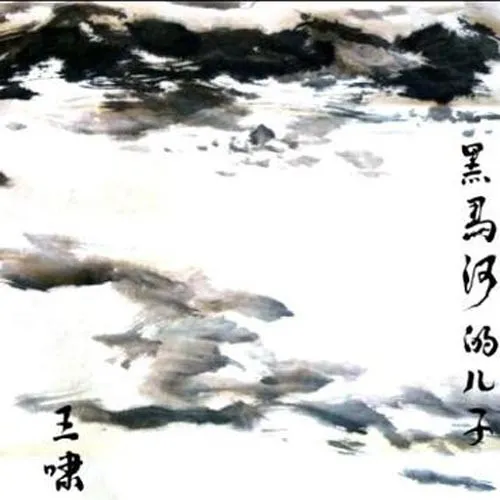 黑马河的儿子
王啸